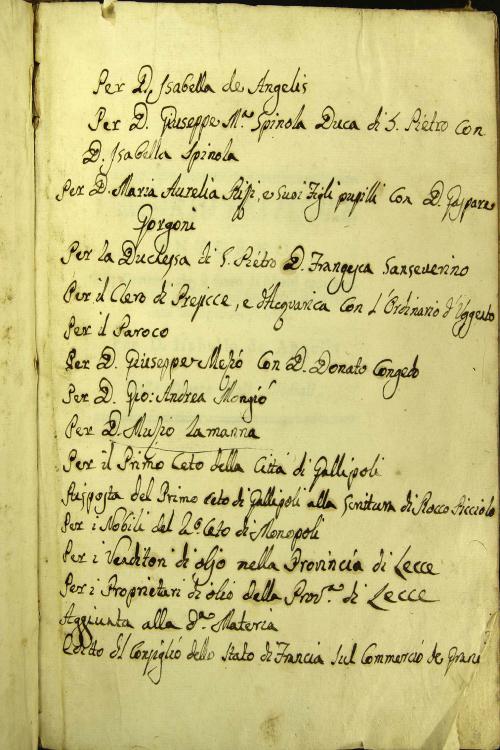 Per D. Isabella de Angelis
Per D. Giuseppe M.ª Spinola Duca di S. Pietro con
D. Isabella Spinola
Per D. Maria Aurelia Rissi, e suoi Figli pupilli con D. Gaspare
Gorgoni
Per la Duchessa di S. Pietro D. Francesca Sanseverino
Per il Clero di Presicce, e d'Acquarica con l'Ordinario d'Uggento
Per il Paroco
Per D. Giuseppe con D. Donato Congedo
Per D. Gio: Andrea Mongiò
Per D. Muzio Lamanna
Per il Primo Ceto della Città di Gallipoli
Risposta del Primo ceto di Gallipoli alla Scrittura di Rocco Ricciolo
Per i Nobili del 2.º Ceto di Monopoli
Per i Venditori di oljo nella Provincia di Lecce
Per i Proprietari di olio della Prov.ª di Lecce
Aggiunta alla d.ª Materia
Editto del Consiglio dello Stato di Francia sul Commercio de Grani